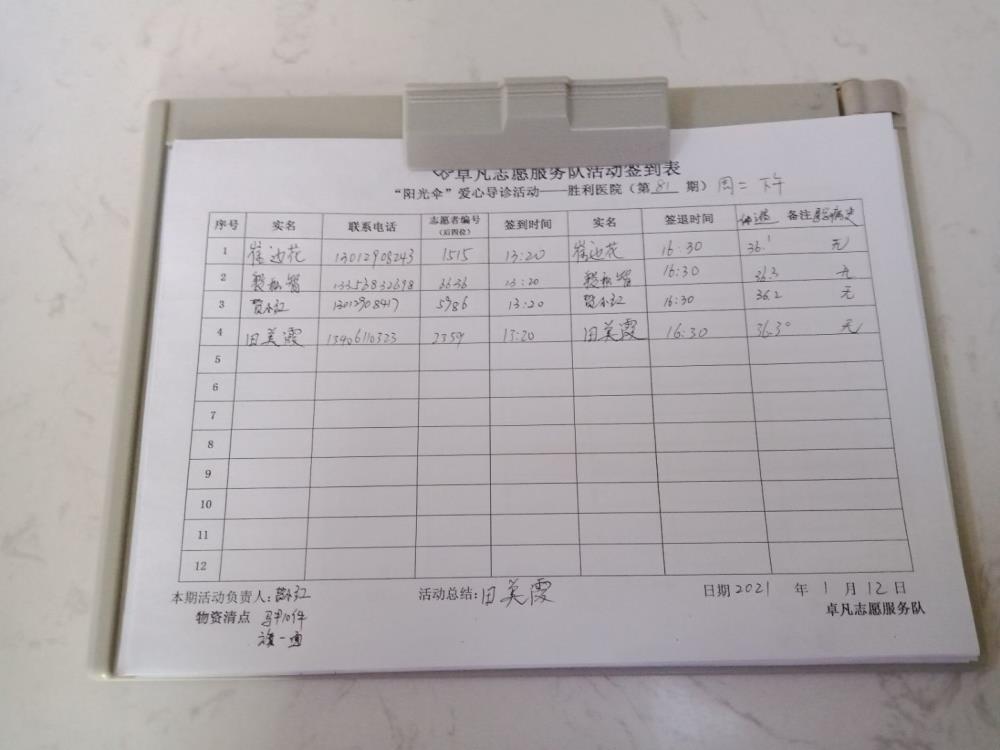 卓凡志愿服务队活动签到表
“阳光伞”爱心导诊活动——胜利医院（第 81 期）周二 下午
序号 实名 联系电话 志愿者编号（后四位） 签到时间 实名 签退时间 体温 备注 病史
1 崔边花 13012908243 1515 13:20 崔边花 16:30 36.1 无
2 13553832698 3636 13:20 16:30 36.3 无
3 贾小红 13012908417 5786 13:20 贾小红 16:30 36.2 无
4 田美霞 13406110323 2359 13:20 田美霞 16:30 36.3° 无
5
6
7
8
9
10
11
12
本期活动负责人： 活动总结：田美霞 日期 2021 年 1 月 12 日
物资清点 马甲10件 卓凡志愿服务队
旗一面